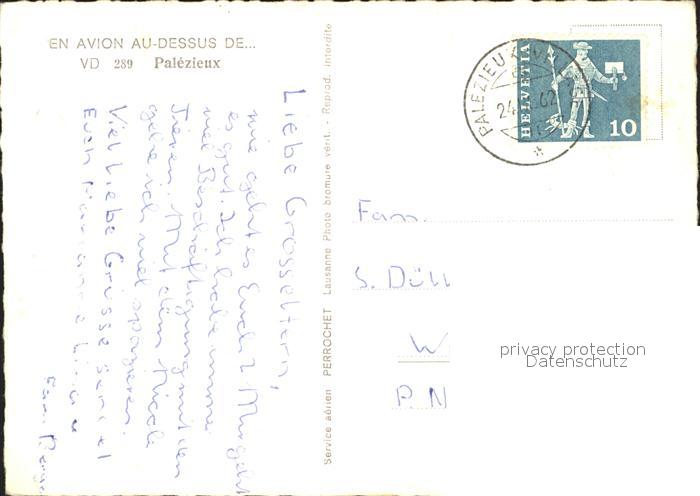 EN AVION AU-DESSUS DE...
VD 289 Palézieux
Service aérien PERROCHET Lausanne Photo bromure vérit. - Reprod. interdite
HELVETIA
10
PALEZIEUX
24
62
Liebe Grosseltern,
wie geht es Euch? Mir geht
es gut. Ich habe immer
viel Beschäftigung mit den
Tieren. Mit dem Nicole
gehe ich viel spazieren.
Viel liebe Grüsse sendet
Euch
Fam.
S. Düll
W
P. N
privacy protection
Datenschutz